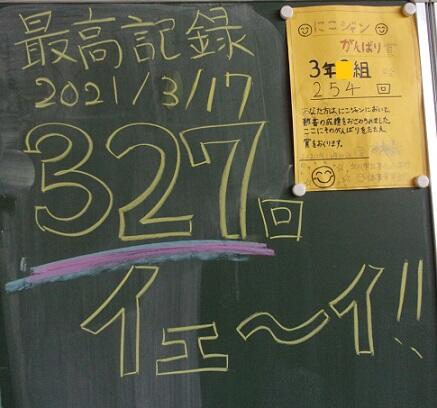 最高記録
2021/3/17
327回
イェ〜イ!!
にこジャン
がんばり賞
3年 組
254回
あなた方は、にこジャンにおいて、
ここにそのがんばりをたたえ、
賞をおくります。